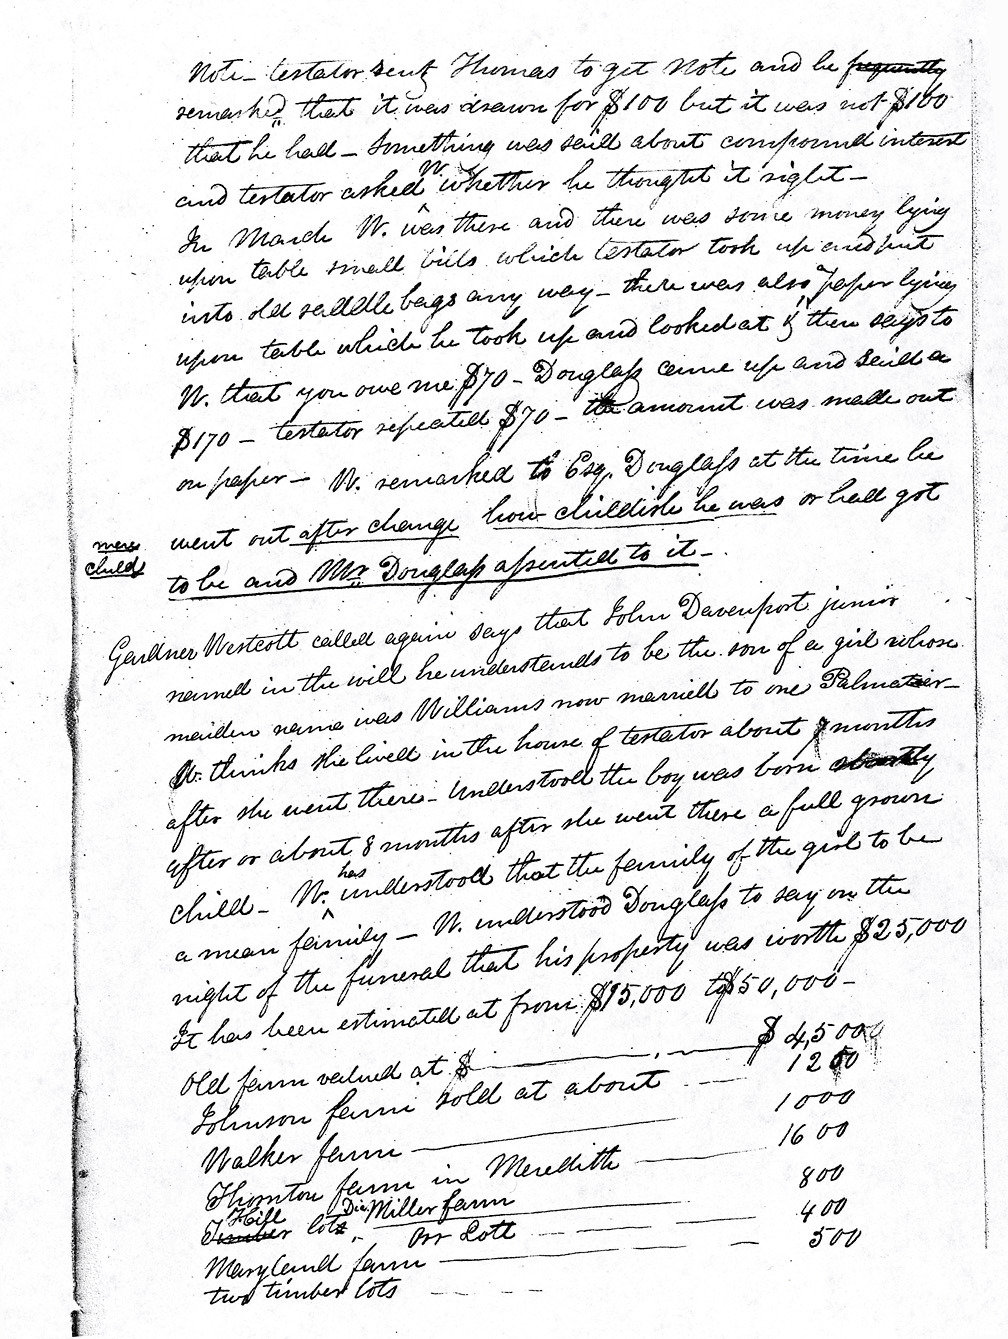 Note - testator sent Thomas to get Note and he frequently
remarked that it was drawn for $100 but it was not $100
that he had - something was said about compound interest
and testator asked W. whether he thought it right -
In March W. was there and there was some money lying
upon table small bills which testator took up and put
into old saddle bags any way - there was also a paper lying
upon table which he took up and looked at it & then says to
W. that you owe me $70 - Douglass came up and said a
$170 - testator repeated $70 - the amount was made out
on paper - W. remarked to Esq. Douglass at the time he
went out after change how childish he was or had got
mere
child
to be and Mr Douglass assented to it -
Gardner Westcott called again says that John Davenport junior
named in the will he understands to be the son of a girl whose
maiden name was Williams now married to one Palmatier -
W. thinks she lived in the house of testator about 7 months
after she went there - understood the boy was born shortly
after or about 8 months after she went there a full grown
child - W. has understood that the family of the girl to be
a mean family - W. understood Douglass to say on the
night of the funeral that his property was worth $25,000
It has been estimated at from $15,000 to $50,000 -
Old farm valued at $ $4,5000
Johnson farm sold at about 1200
Walker farm 1000
Thornton farm in Meredith 1600
Timber Hill lots Do. Miller farm 800
Orr Lott 400
Maryland farm 500
two timber lots